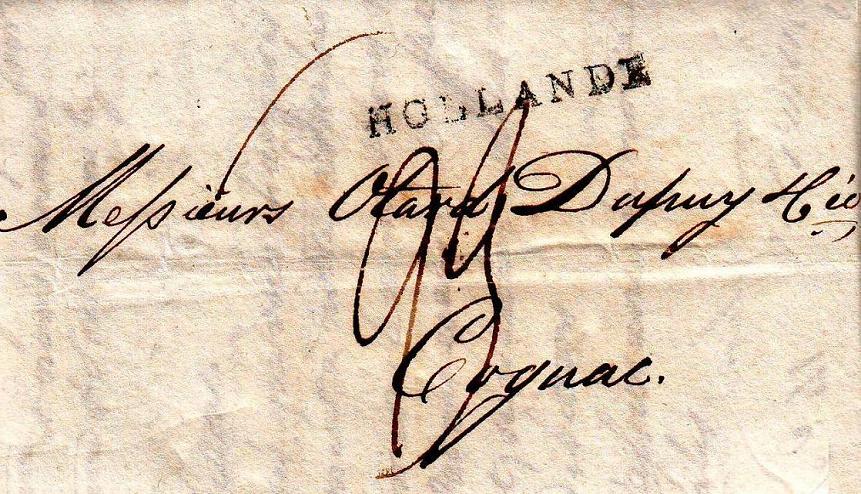 HOLLANDE
Messieurs Otard Dupuy & Cie
Cognac.